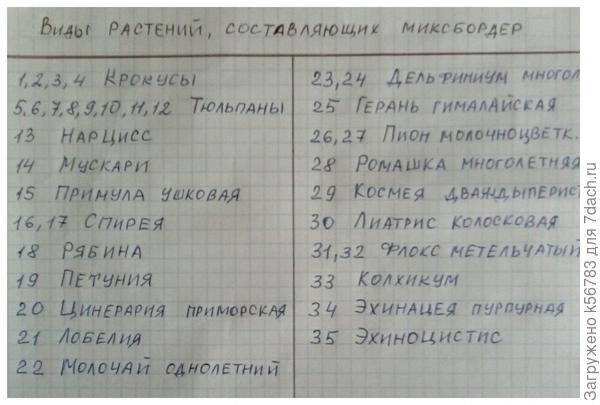 Виды растений, составляющих миксбордер
1,2,3,4 Крокусы
5,6,7,8,9,10,11,12 Тюльпаны
13 Нарцисс
14 Мускари
15 Примула ушковая
16,17 Спирея
18 Рябина
19 Петуния
20 Цинерария приморская
21 Лобелия
22 Молочай однолетний
23,24 Дельфиниум многол
25 Герань гималайская
26,27 Пион молочноцветк.
28 Ромашка многолетняя
29 Космея дваждыперист
30 Лиатрис колосковая
31,32 Флокс метельчатый
33 Колхикум
34 Эхинацея пурпурная
35 Эхиноцистис
Загружено k56783 для 7dach.ru